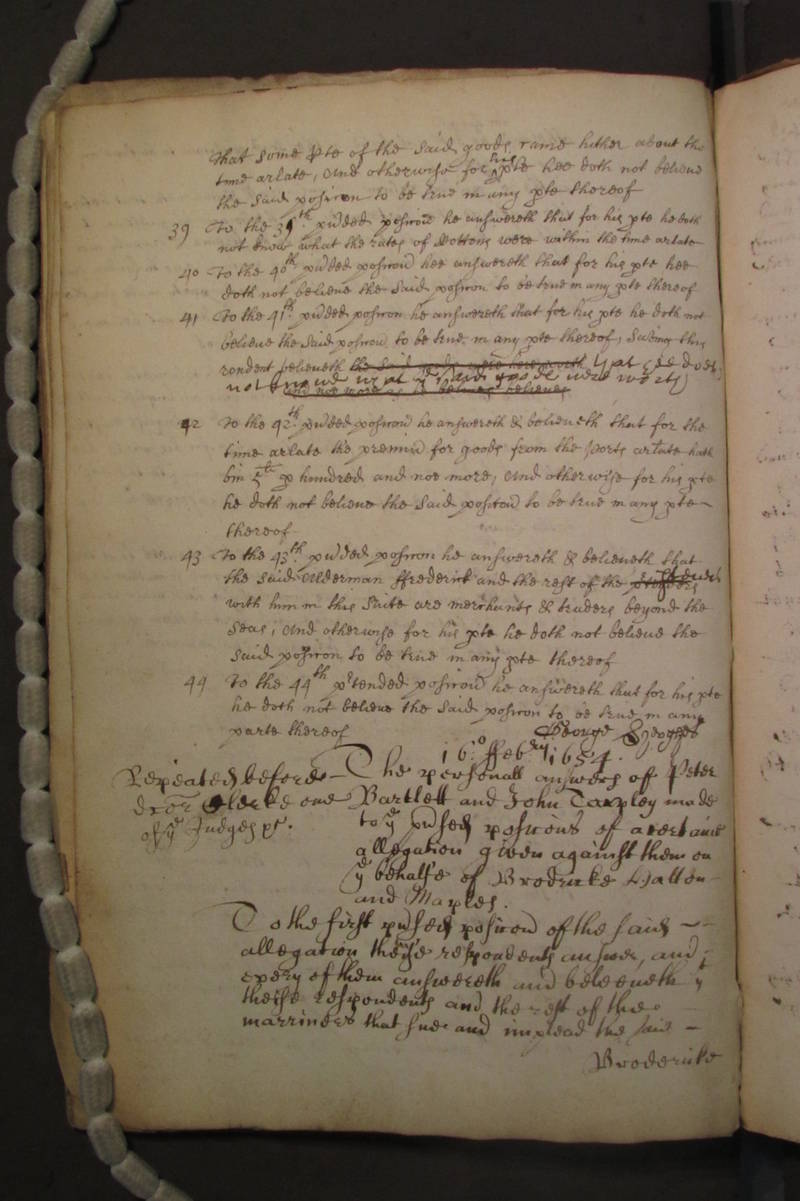 that some pte of the said goods came hither about the
time arlate, And otherwise for his pte hee doth not believe
the said posicon to be true in any pte thereof
39 To the 39th. prded posicon he answereth that for his pte he doth
not know what the rates of Bottoms were within the time arlate
40 To the 40th prded posicon hee answereth that for his pte hee
doth not believe the said posicon to be true in any pte thereof
41 To the 41th. prded posicon he answereth that for his pte he doth not
believe the said posicon to be true in any pte thereof, Saving this
rondent believeth the said goods were here worth that he doth
not knowe what the said goods were worth
and not more as he believes believeth
42 To the 42th. prded posicon he answereth & believeth that for the
time arlate the premiu for goods from the Ports arlate hath
bin 5 li p hundred and noe more, And otherwise for his pte
he doth not believe the said posicon to be true in any pte
thereof
43 To the 43th prded posicon he answereth & believeth that
the said Alderman ffrederick and the rest of the
with him in this suite are merchants & traders beyond the
Seas, And otherwise for his pte he doth not believe the
said posicon to be true in any pte thereof
44 To the 44th prtended posicon he answereth that for his pte
he doth not believe the said posicon to be true in any
parte thereof
George
16o ffebry 1654.
Repeated before
dcor Clerke one
of ye Judges pt.
The personall answers of Peter
Bartlett and John Tarpley made
to ye prsed posicons of a certaine
allegation given against them on
ye behalfe of Brodericke Hatton
and Maples.
To the first prsed posicon of the said
allegation theise respondents answer, and
every of them answereth and beleeveth yt
theise respondents and the rest of the
marriners that sue and implead the said
Brodericke